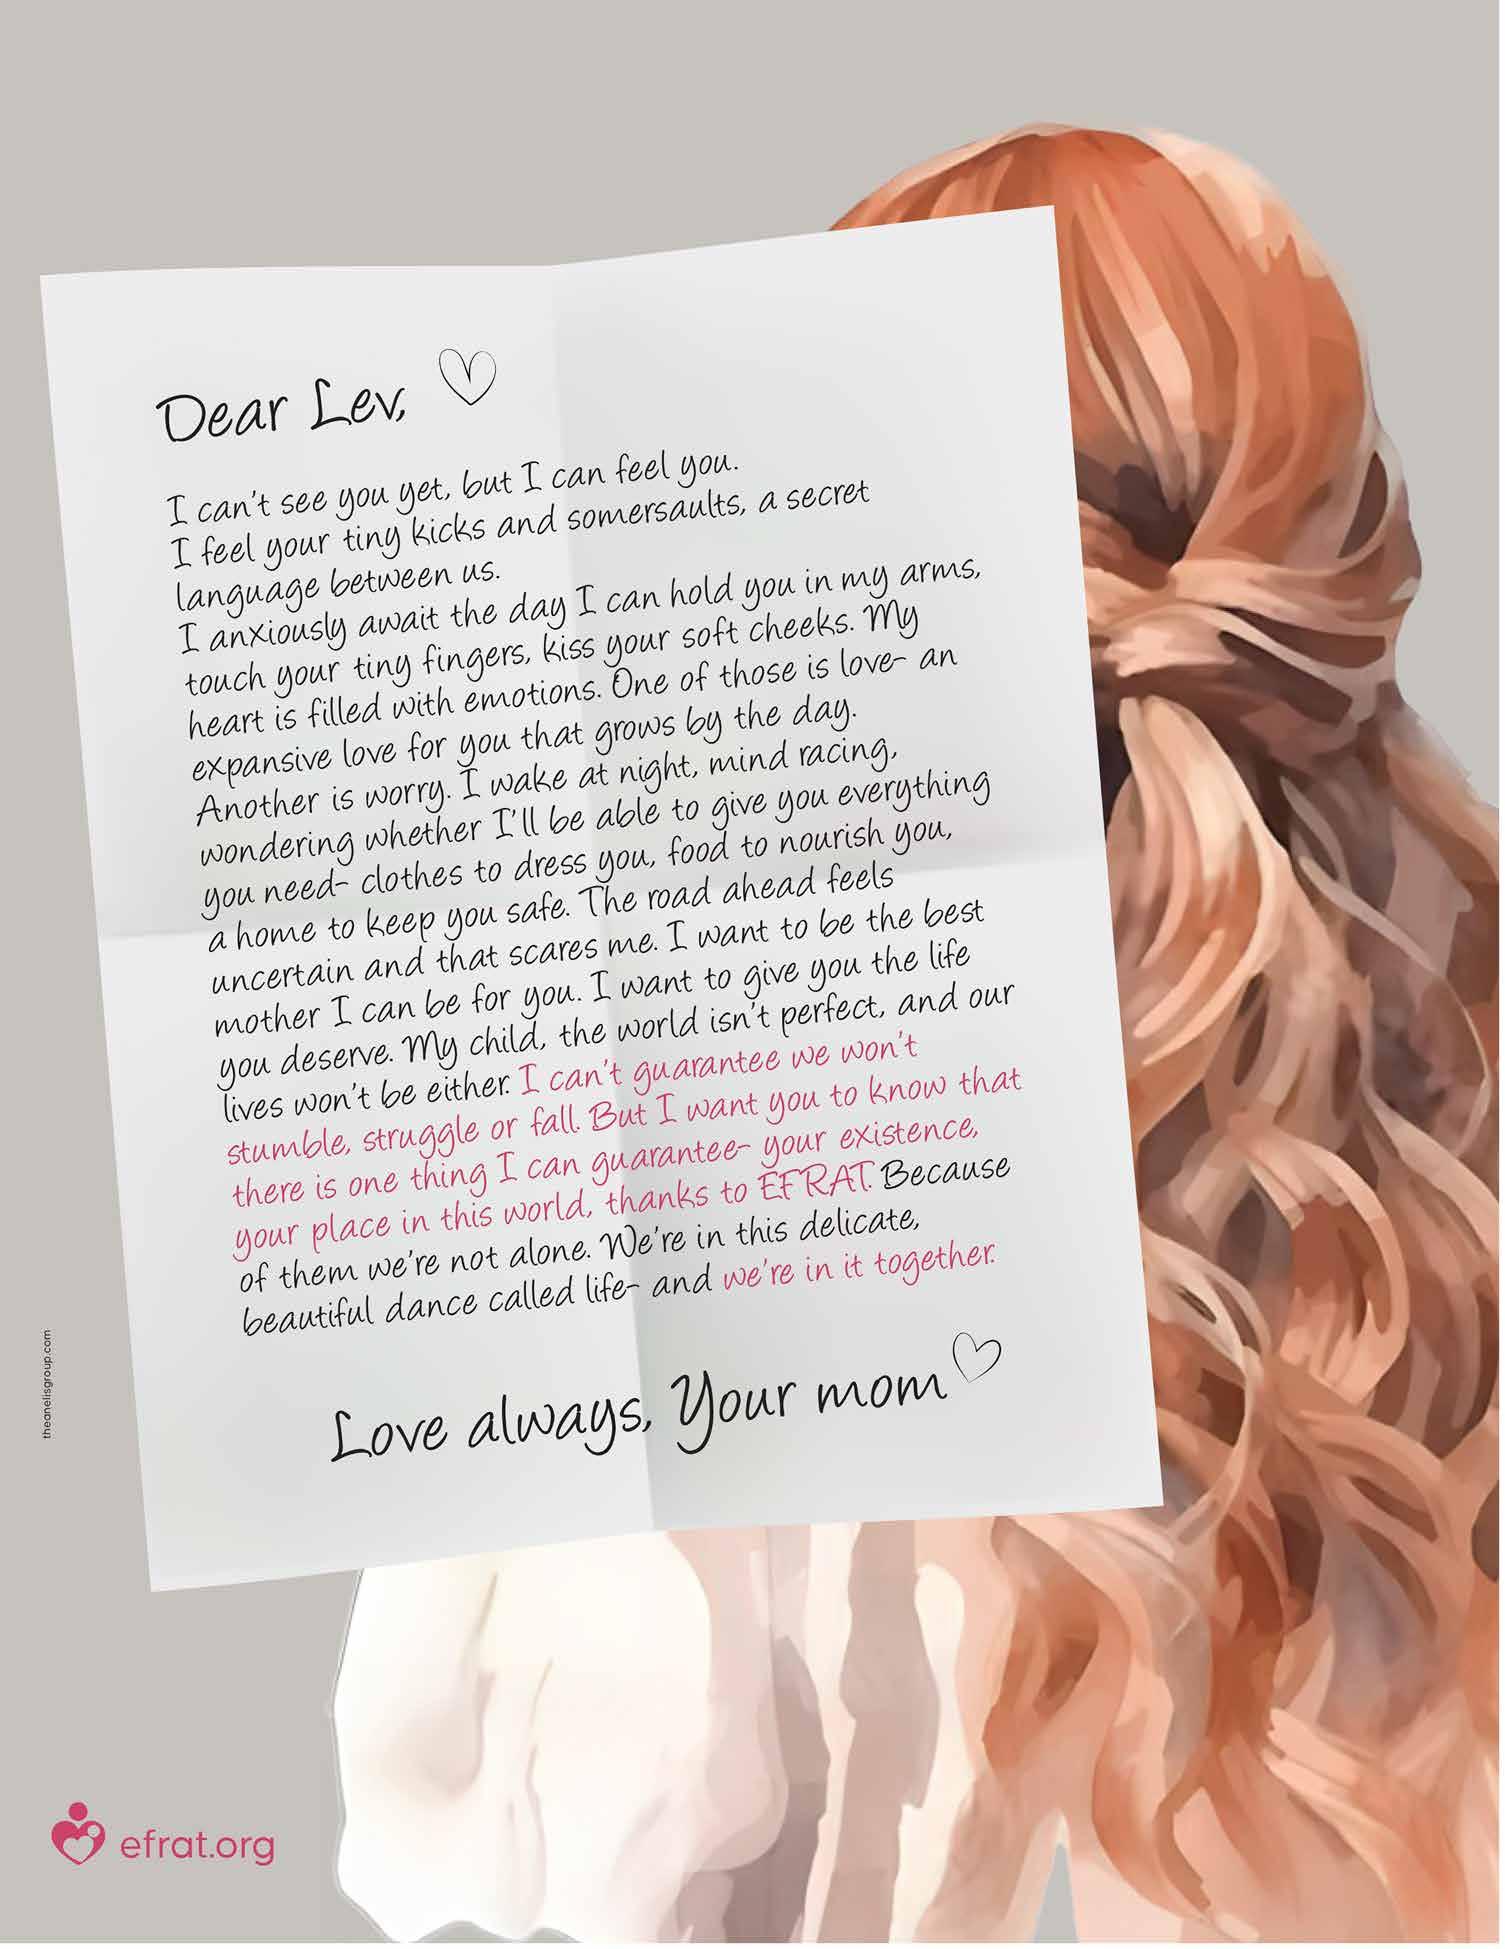 Dear Lev,
I can't see you yet, but I can feel you.
I feel your tiny kicks and somersaults, a secret
language between us.
I anxiously await the day I can hold you in my arms,
touch your tiny fingers, kiss your soft cheeks. My
heart is filled with emotions. One of those is love- an
expansive love for you that grows by the day.
Another is worry. I wake at night, mind racing,
wondering whether I'll be able to give you everything
you need- clothes to dress you, food to nourish you,
a home to keep you safe. The road ahead feels
uncertain and that scares me. I want to be the best
mother I can be for you. I want to give you the life
you deserve. My child, the world isn't perfect, and our
lives won't be either. I can't guarantee we won't
stumble, struggle or fall. But I want you to know that
there is one thing I can guarantee- your existence,
your place in this world, thanks to EFRAT. Because
of them we're not alone. We're in this delicate,
beautiful dance called life- and we're in it together.
Love always, Your mom
theanelisgroup.com
efrat.org